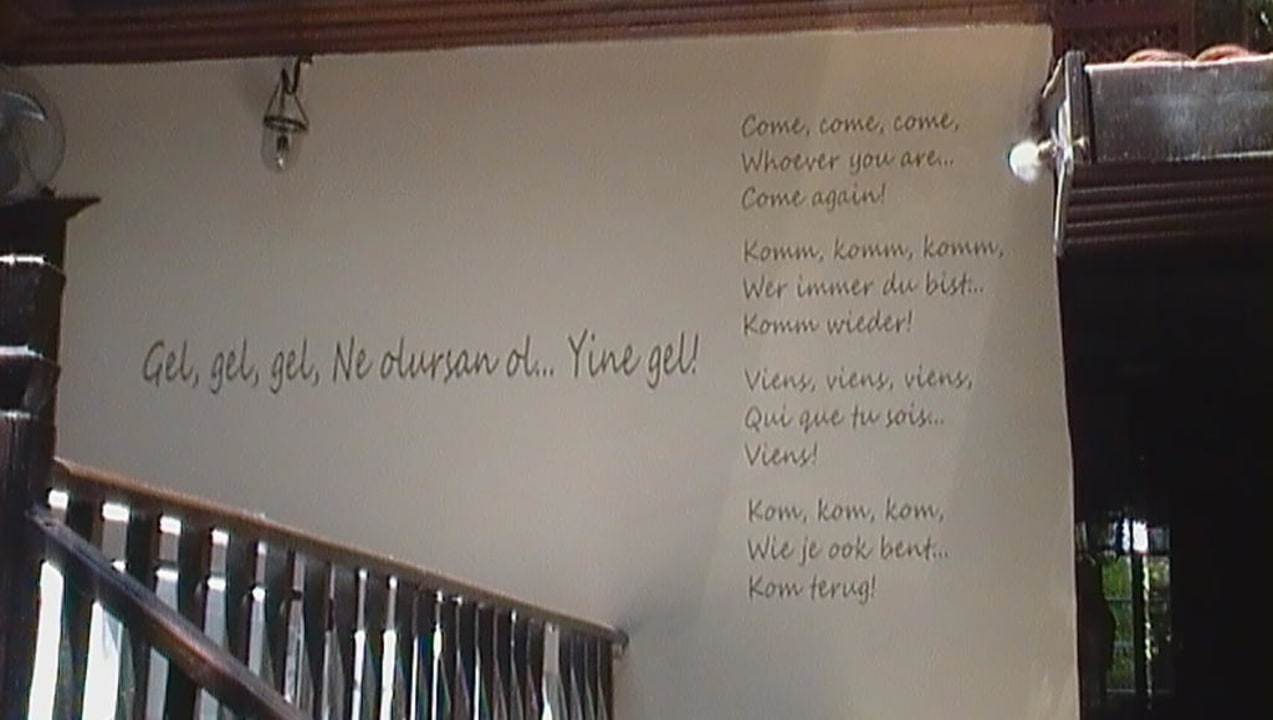 Gel, gel, gel, Ne olursan ol... Yine gel!
Come, come, come,
Whoever you are...
Come again!
Komm, komm, komm,
Wer immer du bist...
Komm wieder!
Viens, viens, viens,
Qui que tu sois...
Viens!
Kom, kom, kom,
Wie je ook bent...
Kom terug!